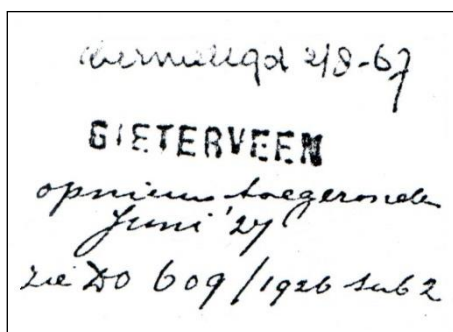 vernietigd 2/8-67
GIETERVEEN
opnieuw toegezonden
Juni '27
zie DO 609/1926 sub 2